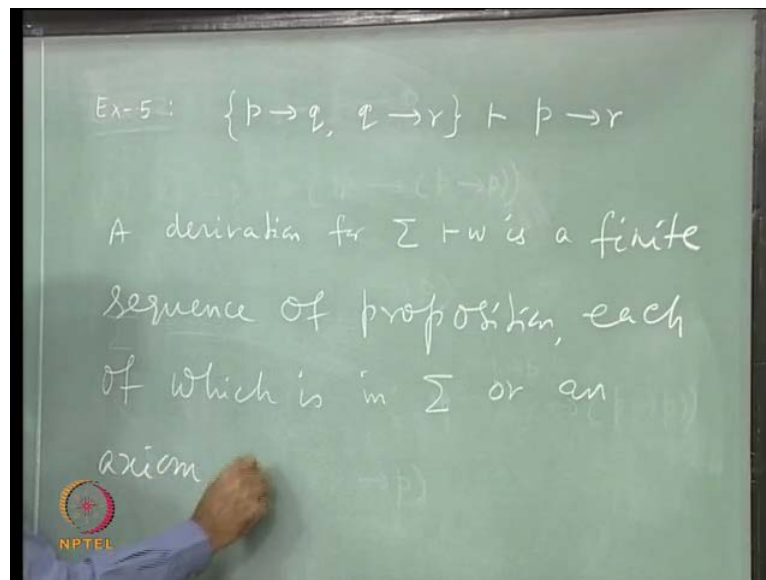 Ex-5: {p→q, q→r} ⊢ p→r
A derivation for Σ ⊢ w is a finite
sequence of proposition, each
of which is in Σ or an
axiom
NPTEL